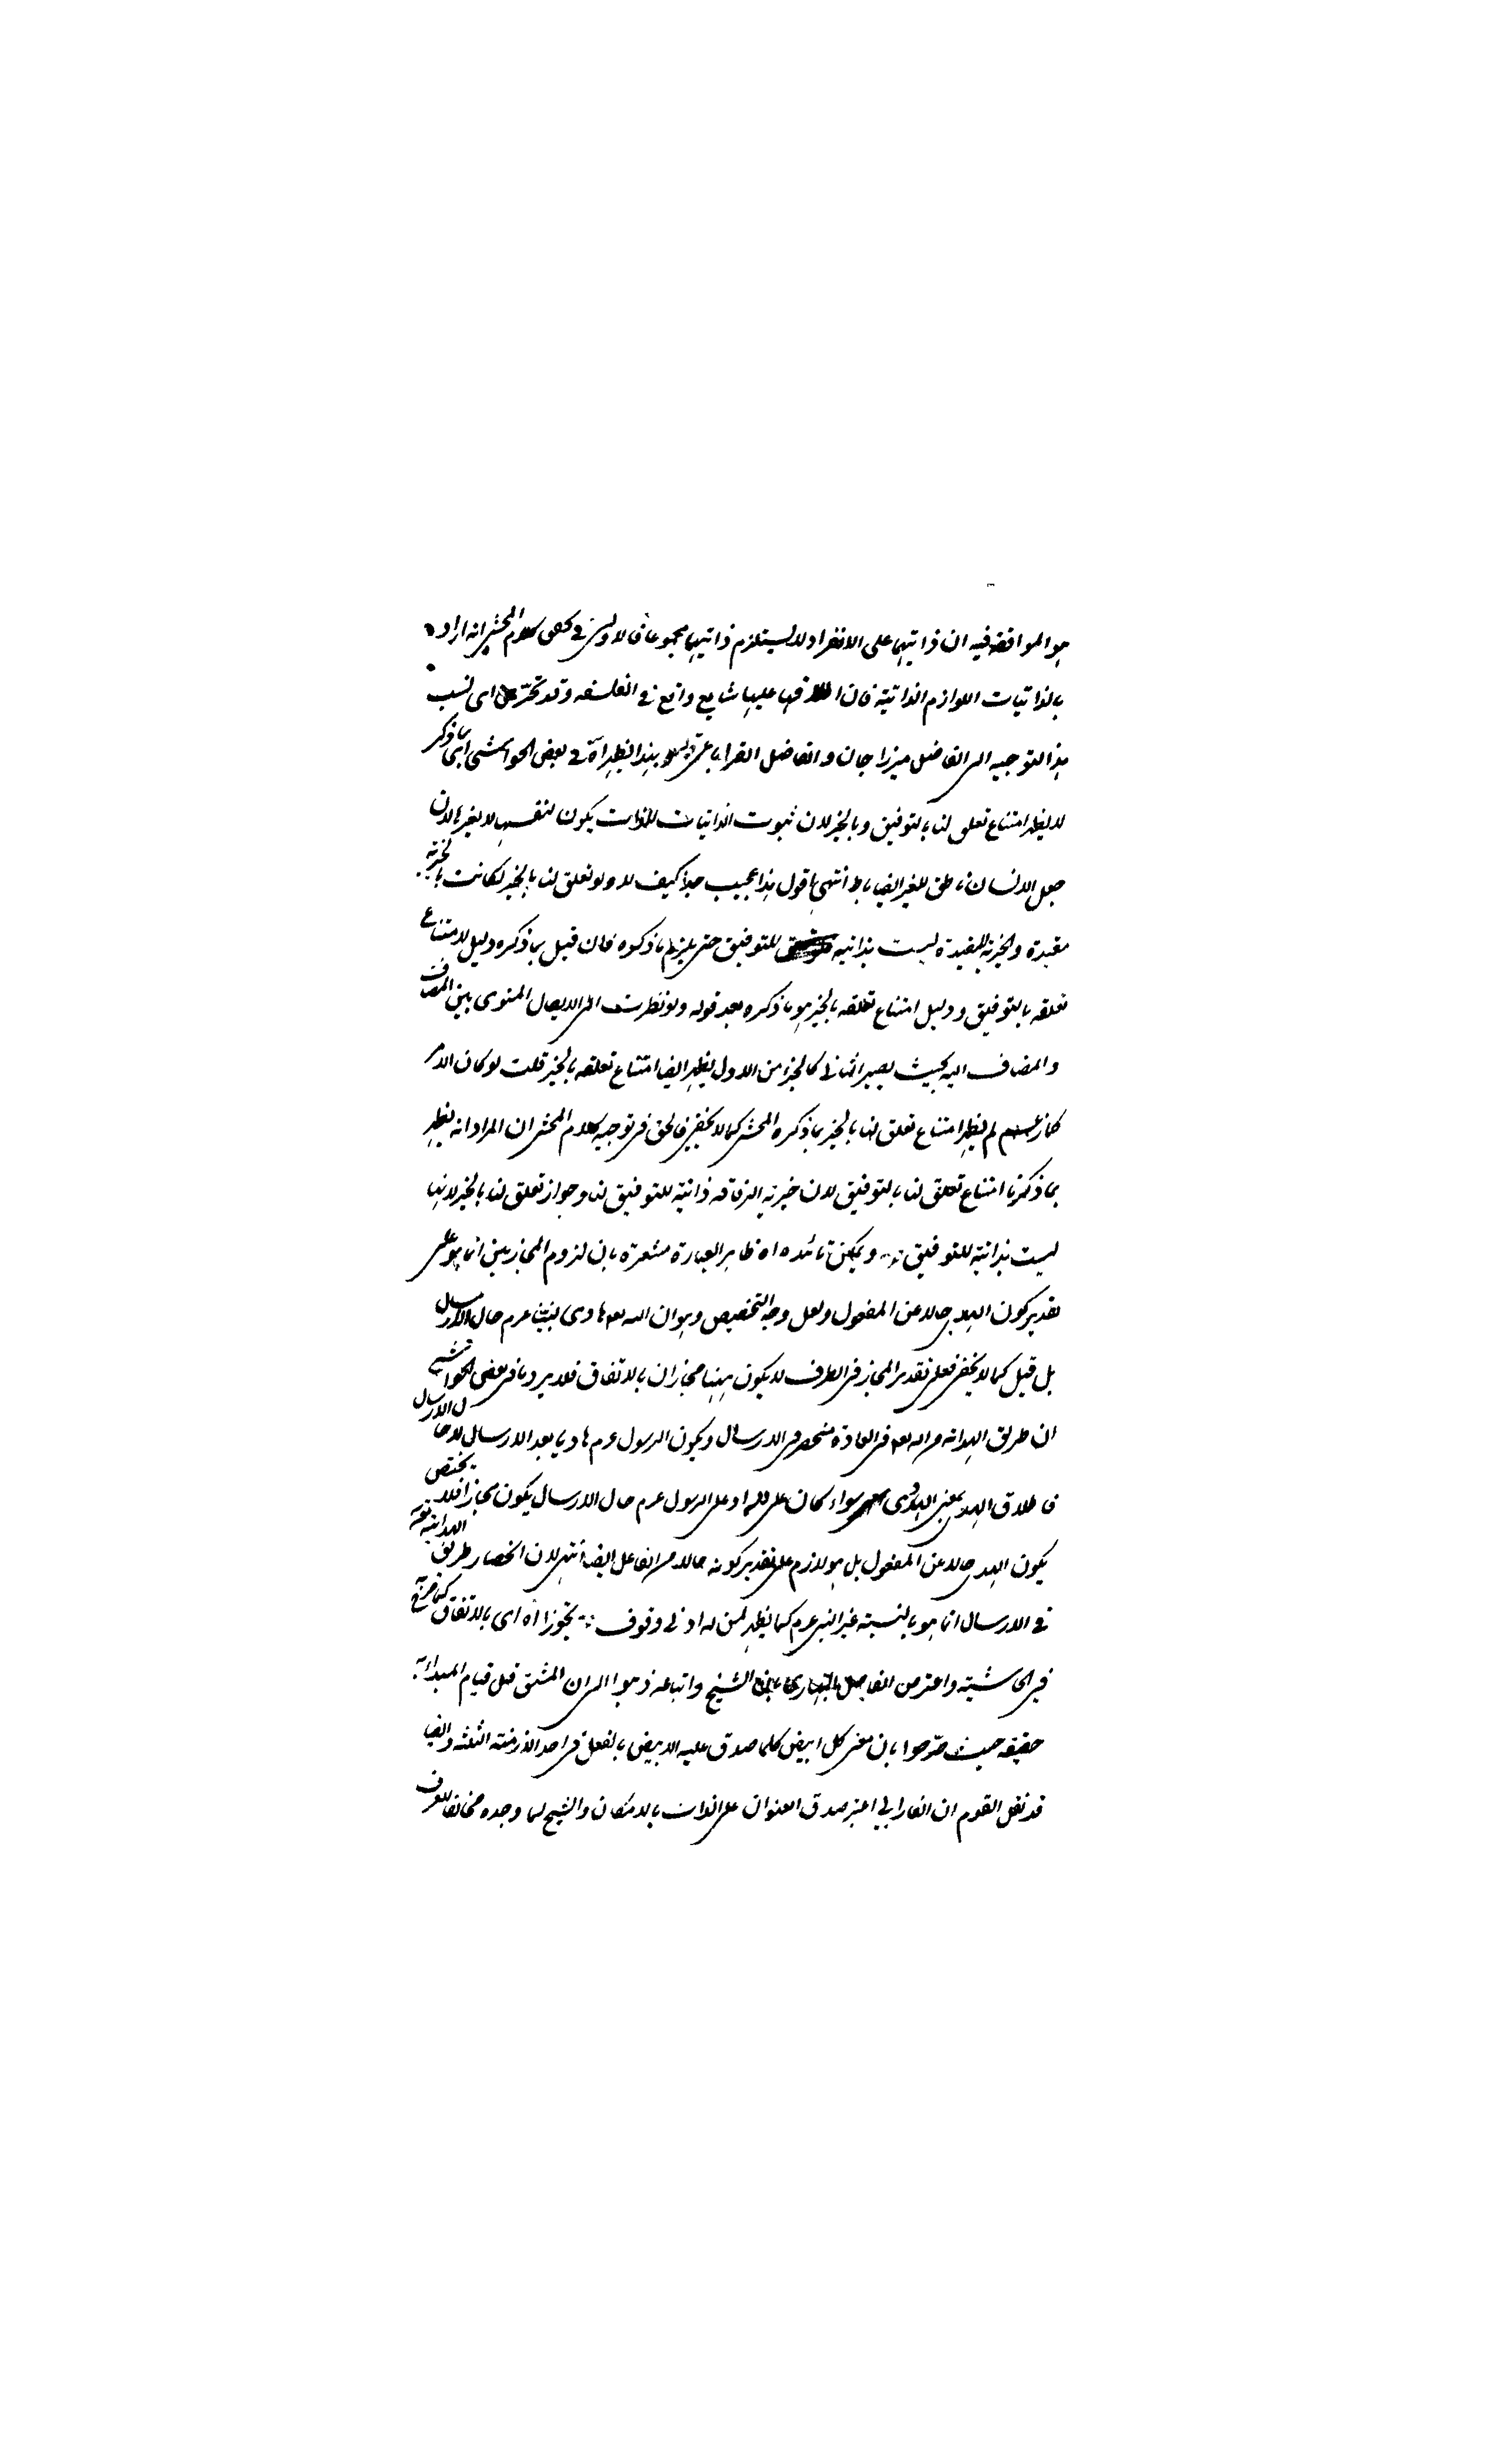 هو الموافقة فيه ان ذاتيهما على الانفراد لا يستلزم ذاتيهما مجموعا فالاولى في كلام المحشى انه اراد
بالذاتيات اللوازم الذاتية فان اطلاقها عليها شايع واقع في الفلسفه وقد نسب
هذا التوجيه الى الفاضل ميرزا جان والفاضل القراباغى بهذا يظهر آه في بعض الحواشى اى بما ذكر
لا يظهر امتناع تعلق لنا بالتوفيق وبالخير لان ثبوت الذاتيات للذات يكون لنفسها لا بغيرها لان
جعل الانسان ناطق للغير ايضا باطل انتهى اقول هذا عجيب جدا كيف لا ولو تعلق لنا بالخير لكانت الخيرية
مقيدة والخيرية المقيدة ليست بذاتيه للتوفيق حتى يلزم ما ذكره فان قيل بما ذكره دليل لامتناع
تعلقه بالتوفيق ودليل امتناع تعلقه بالخير هو ما ذكره بعد قوله ولو نظرت الى الايصال المنوى بين المضاف
والمضاف اليه بحيث يصير الثانى كالجزء من الاول يظهر ايضا امتناع تعلقه بالخير قلت لو كان الامر
كما زعم لم يظهر امتناع تعلق لنا بالخير بما ذكره المحشى كما لا يخفى فالحق فى توجيه كلام المحشى ان المراد انه يظهر
بما ذكرنا امتناع تعلق لنا بالتوفيق لان خيرية الرفاقه ذاتية للتوفيق لنا وجواز تعلق لنا بالخير لانها
ليست بذاتية للتوفيق ويمكن ظاهر العبارة مشعرة بان لزوم المجازين انما هو على
تقدير كون الهدى حالا عن المفعول ولعل وجه التخصيص وهو ان الله تعه هادى نبينا عرم حال الارسال
بل قبل كما لا يخفى فعلى تقدير المجاز فى الطرف لا يكون ههنا مجازان بالاتفاق فلا يرد ما فى بعض الحواشى
ان طريق الهداية من الله تعه فى العادة منحصر فى الارسال ويكون الرسول عرم هاديا بعد الارسال لا حال الارسال
فاطلاق الهدى بمعنى الهادى سواء كان على الله او على الرسول عرم حال الارسال يكون مجازا فلا يختص
بكون الهدى حالا عن المفعول بل هو لازم على تقدير كونه حالا من الفاعل ايضا انتهى لان انحصار طريق الهداية
في الارسال انما هو بالنسبة غير النبى عرم كما يظهر لمن له ادنى وقوف تجوزا آه اى بالاتفاق كما صرح
فى الحاشية واعترض الفاضل بان الشيخ واتباعه ذهبوا الى ان المشتق قبل قيام المبداء به
حقيقه حيث صرحوا بان معنى كل ابيض كلما صدق عليه الابيض بالفعل فى احد الازمنة الثلثة وايضا
قد نقل القوم ان الفارابي اعتبر صدق العنوان على الذات بالامكان والشيخ لما وجده مخالفا للعرف